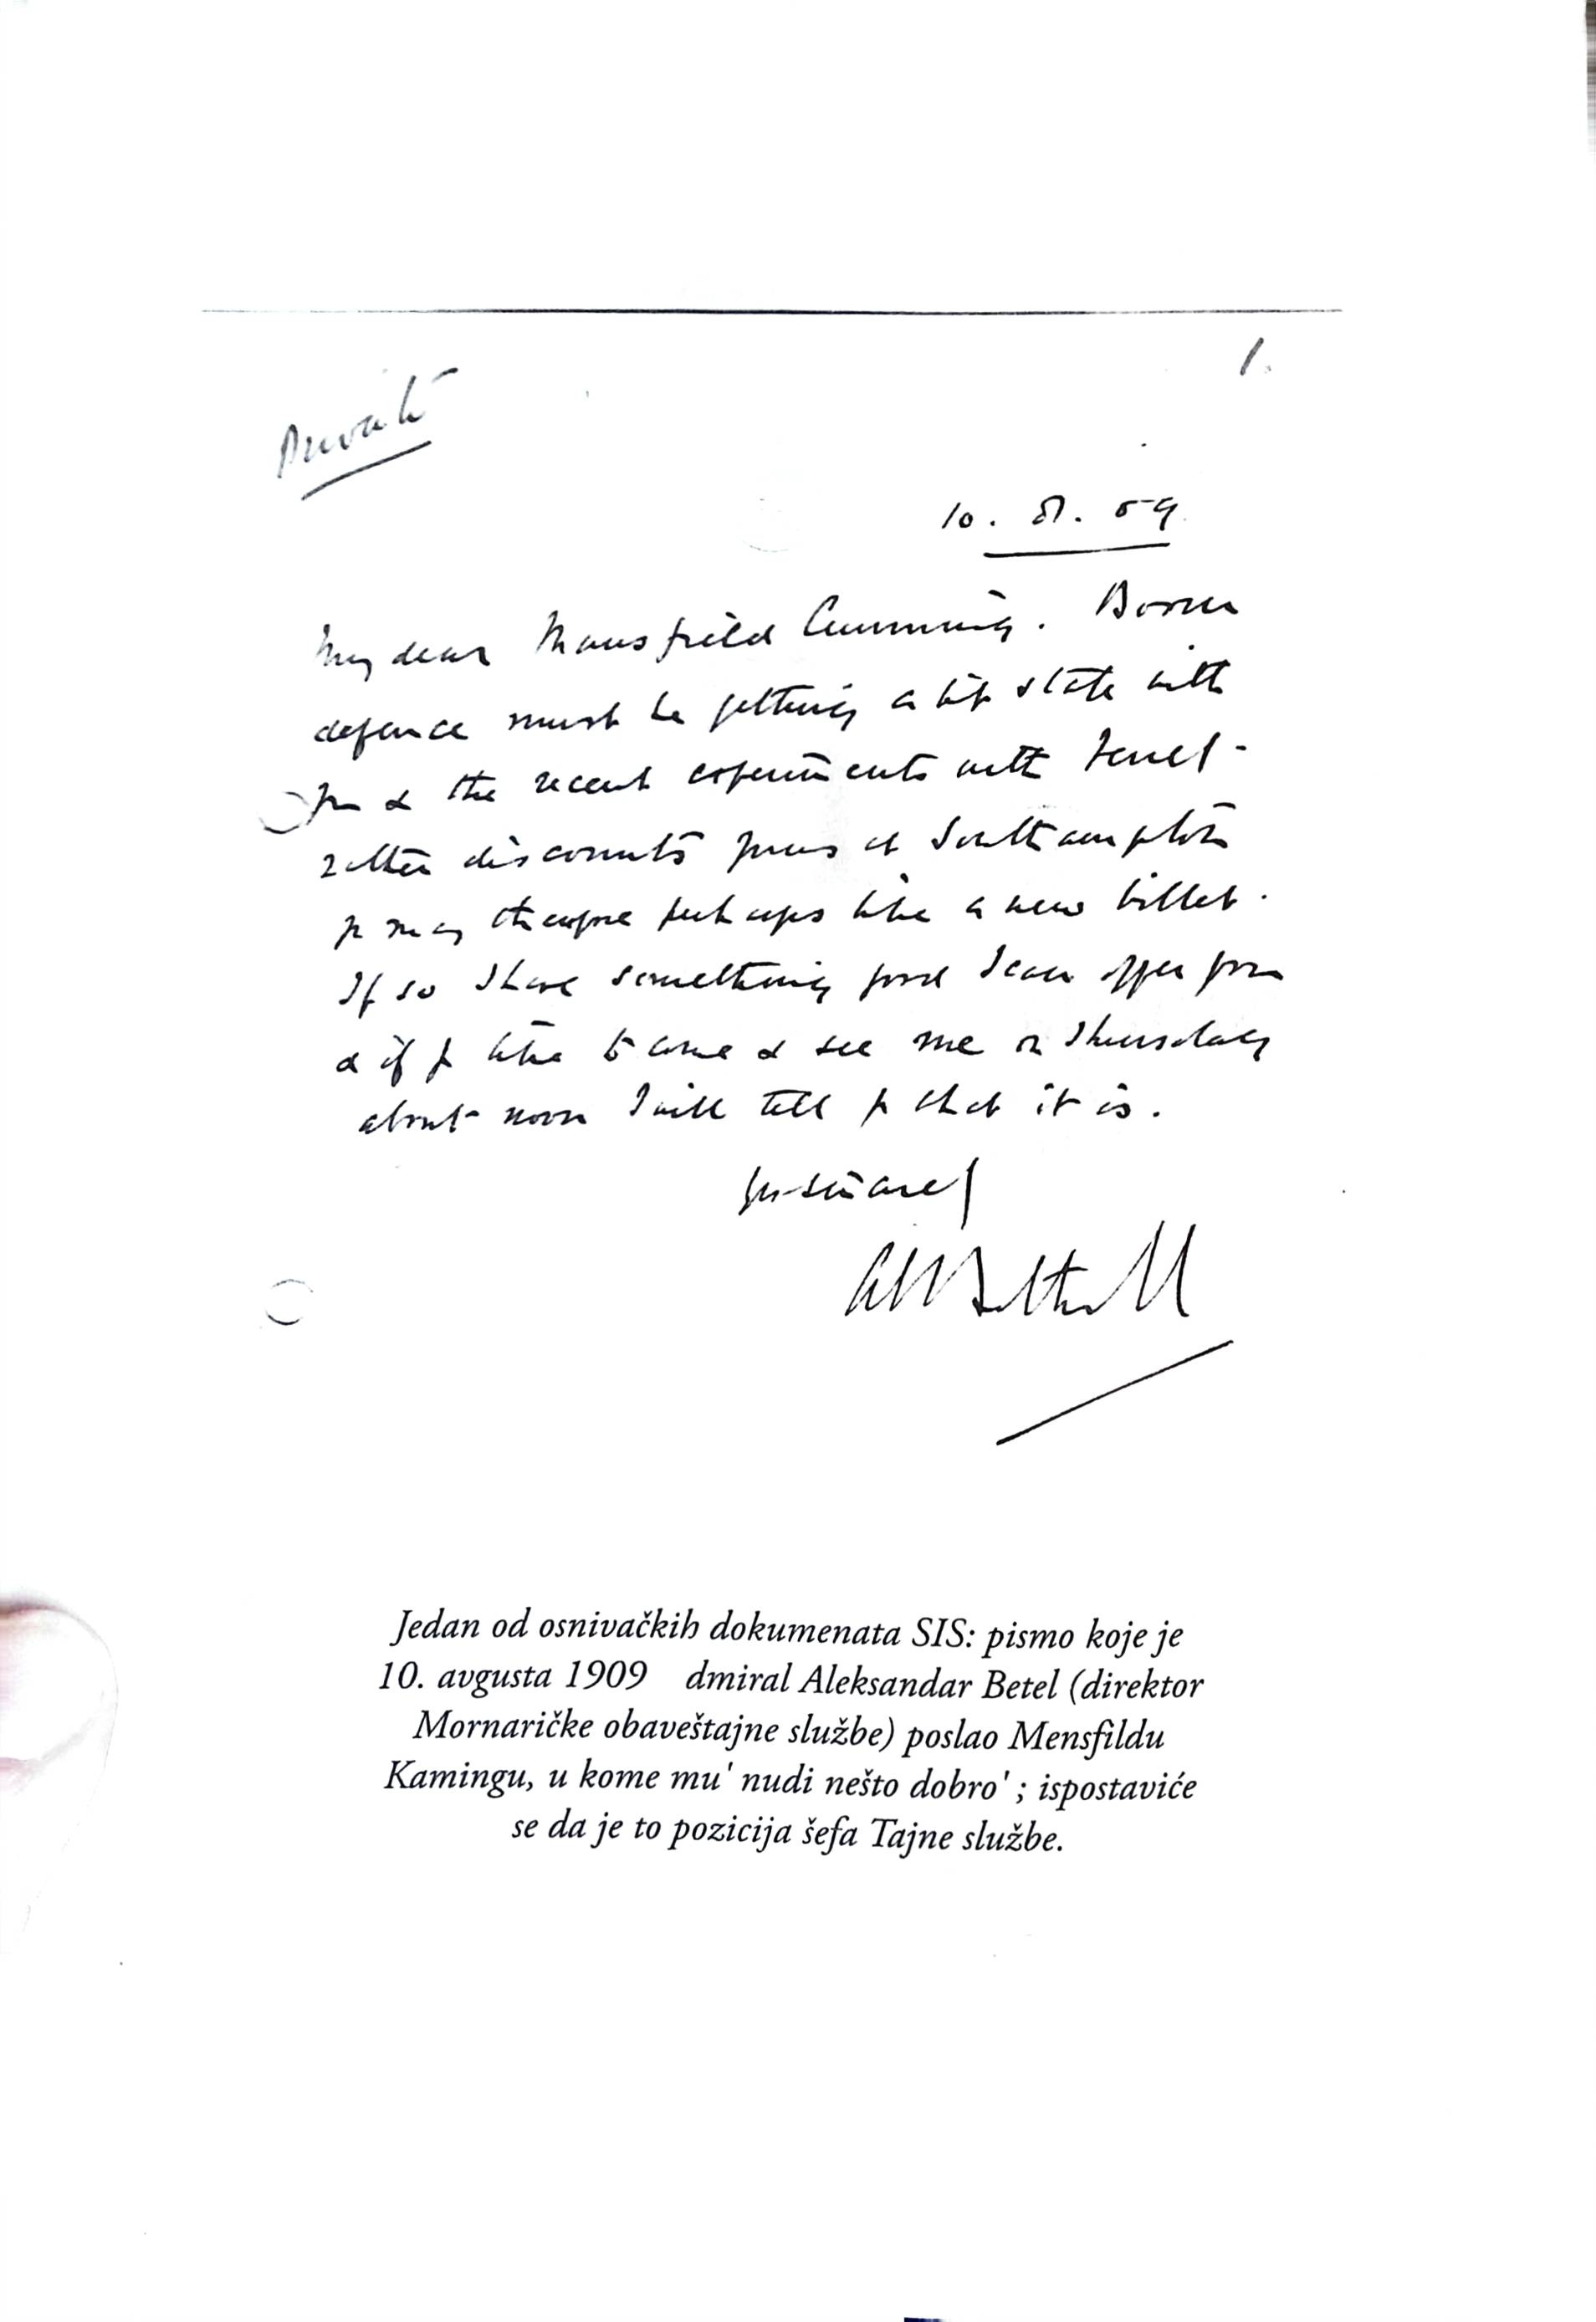 1.
Private
10. 8. 09
My dear Mansfield Cumming. Boom
defence must be getting a bit stale with
& the recent experiments with Ferret
rather discounts yours at Southampton
may therefore perhaps like a new billet.
If so I have something good I can offer you
& if like to come & see me on Thursday
about noon I will tell what it is.
Yrs sincerely
AEBethell
Jedan od osnivačkih dokumenata SIS: pismo koje je
10. avgusta 1909 dmiral Aleksandar Betel (direktor
Mornaričke obaveštajne službe) poslao Mensfildu
Kamingu, u kome mu' nudi nešto dobro' ; ispostaviće
se da je to pozicija šefa Tajne službe.